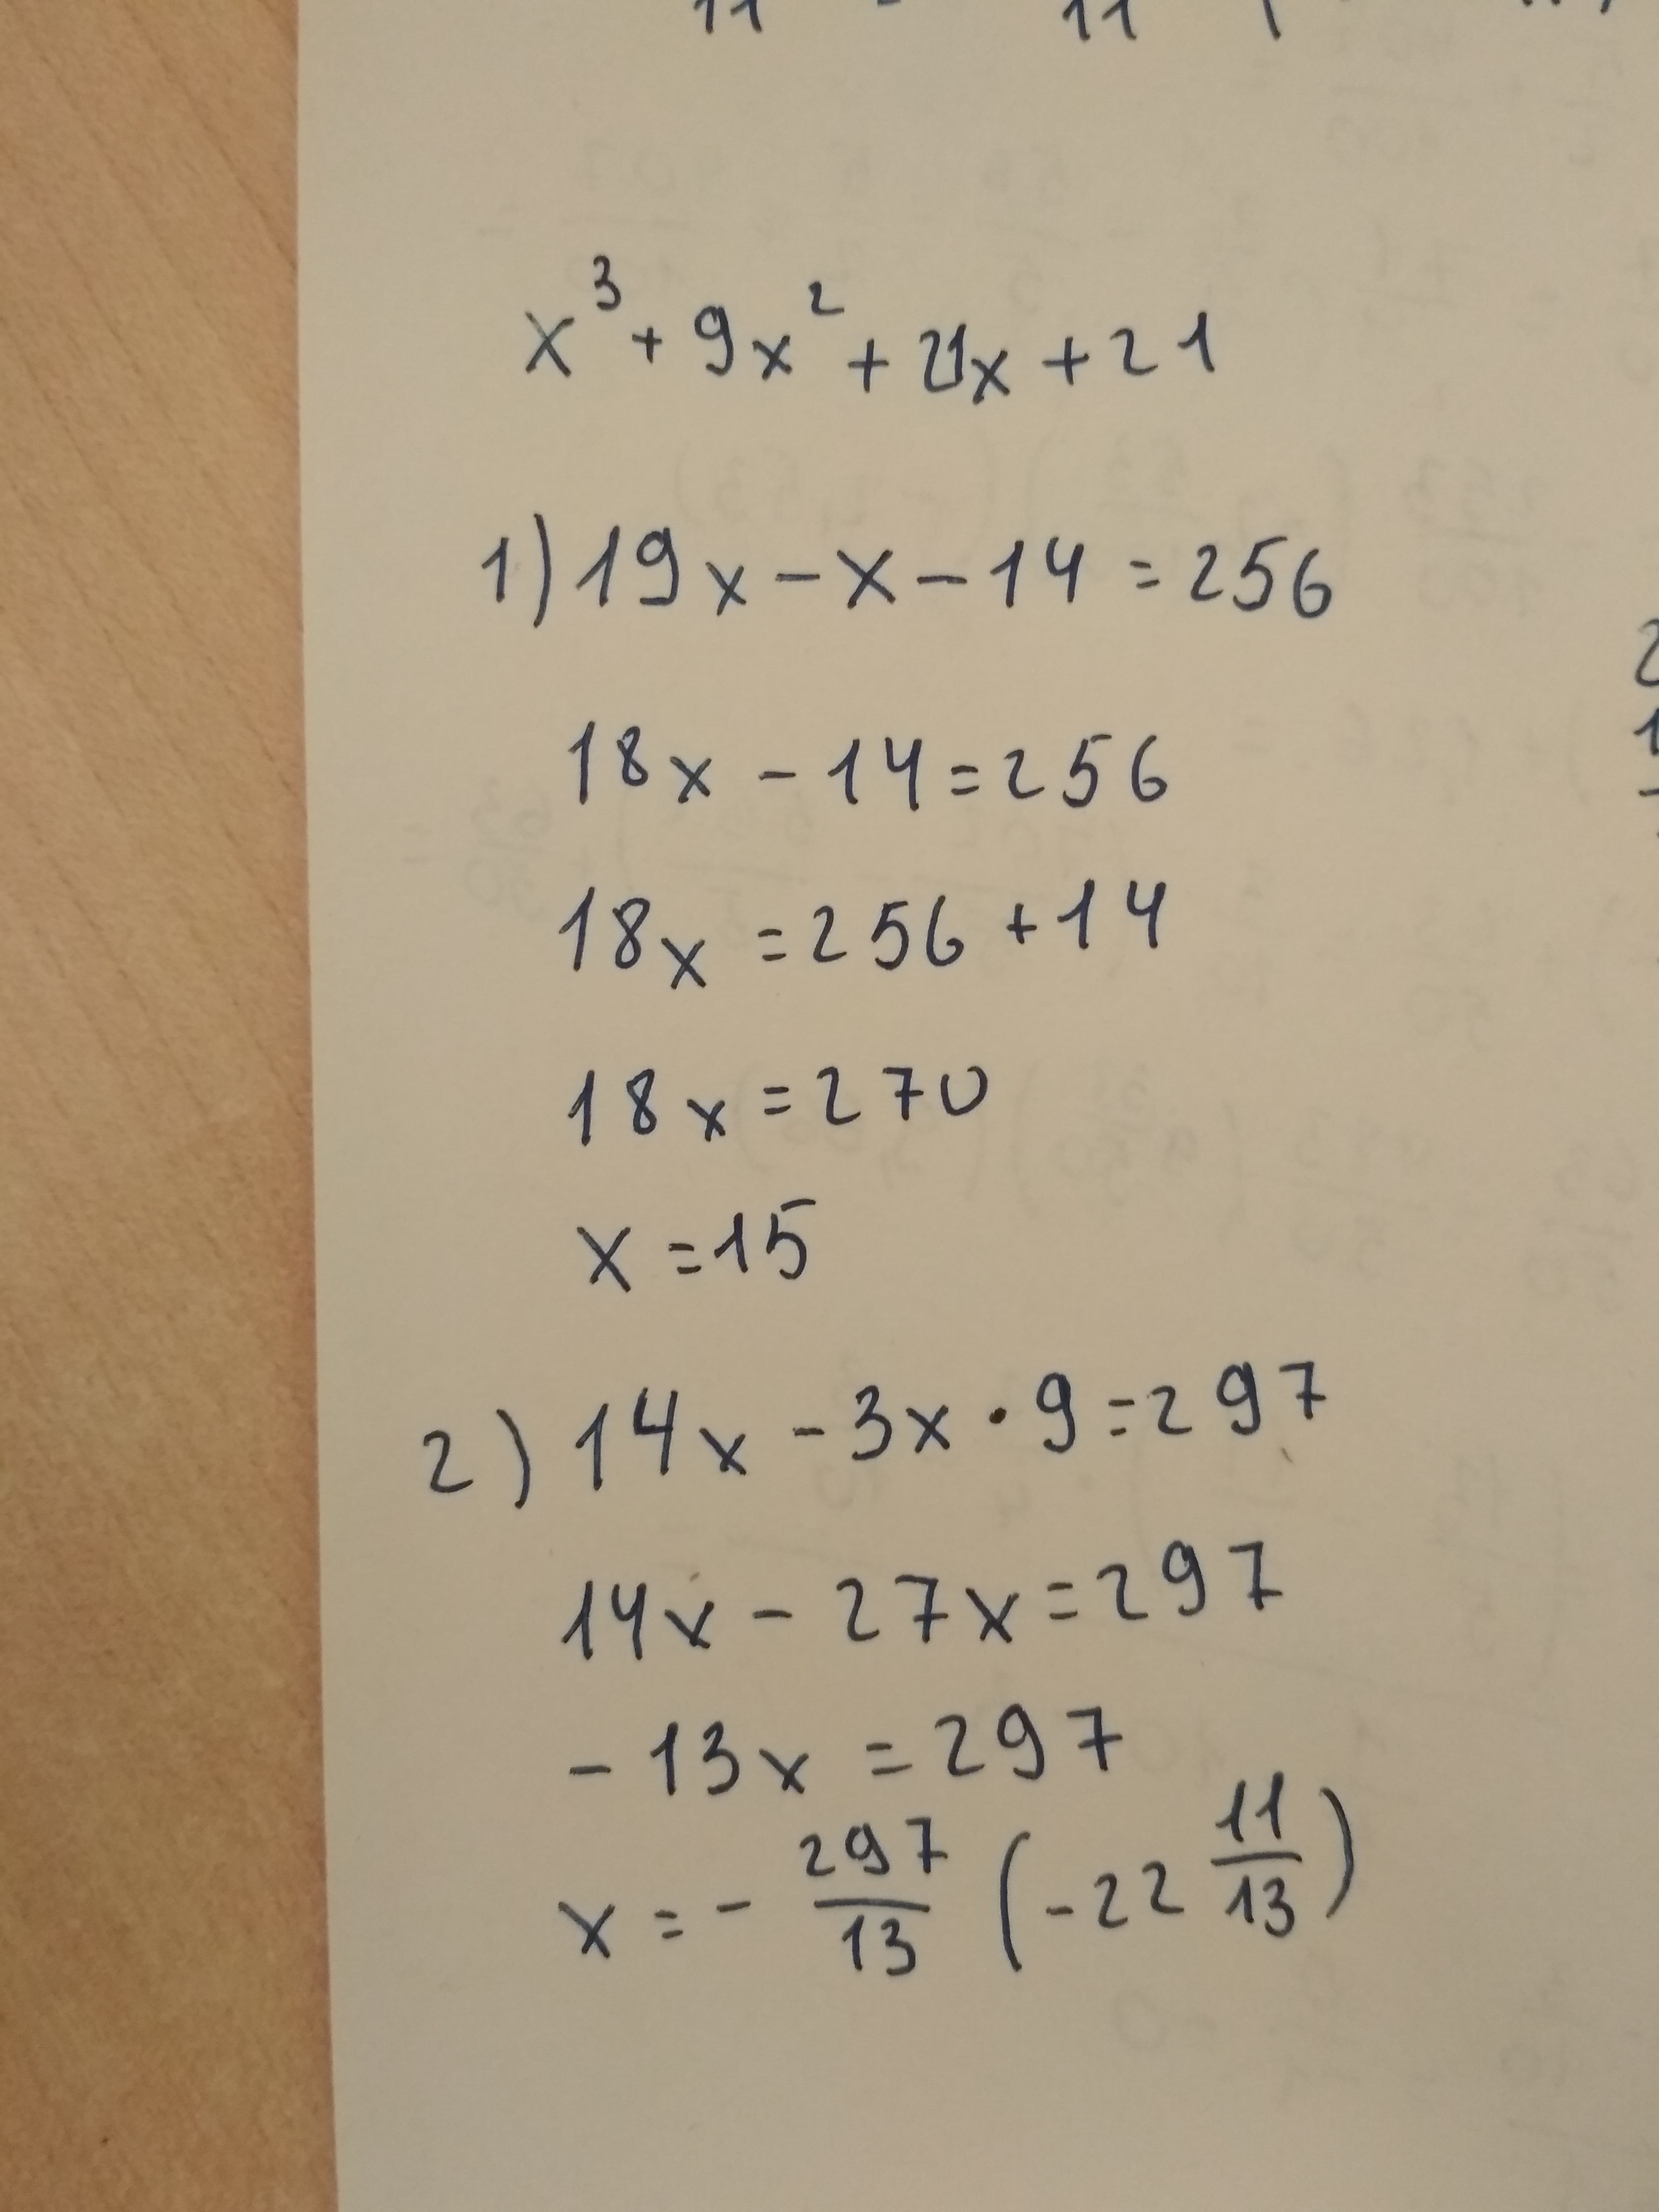 x³ + 9x² + 21x + 21
1) 19x - x - 14 = 256
18x - 14 = 256
18x = 256 + 14
18x = 270
x = 15
2) 14x - 3x · 9 = 297
14x - 27x = 297
- 13x = 297
x = - 297/13 (-22 11/13)